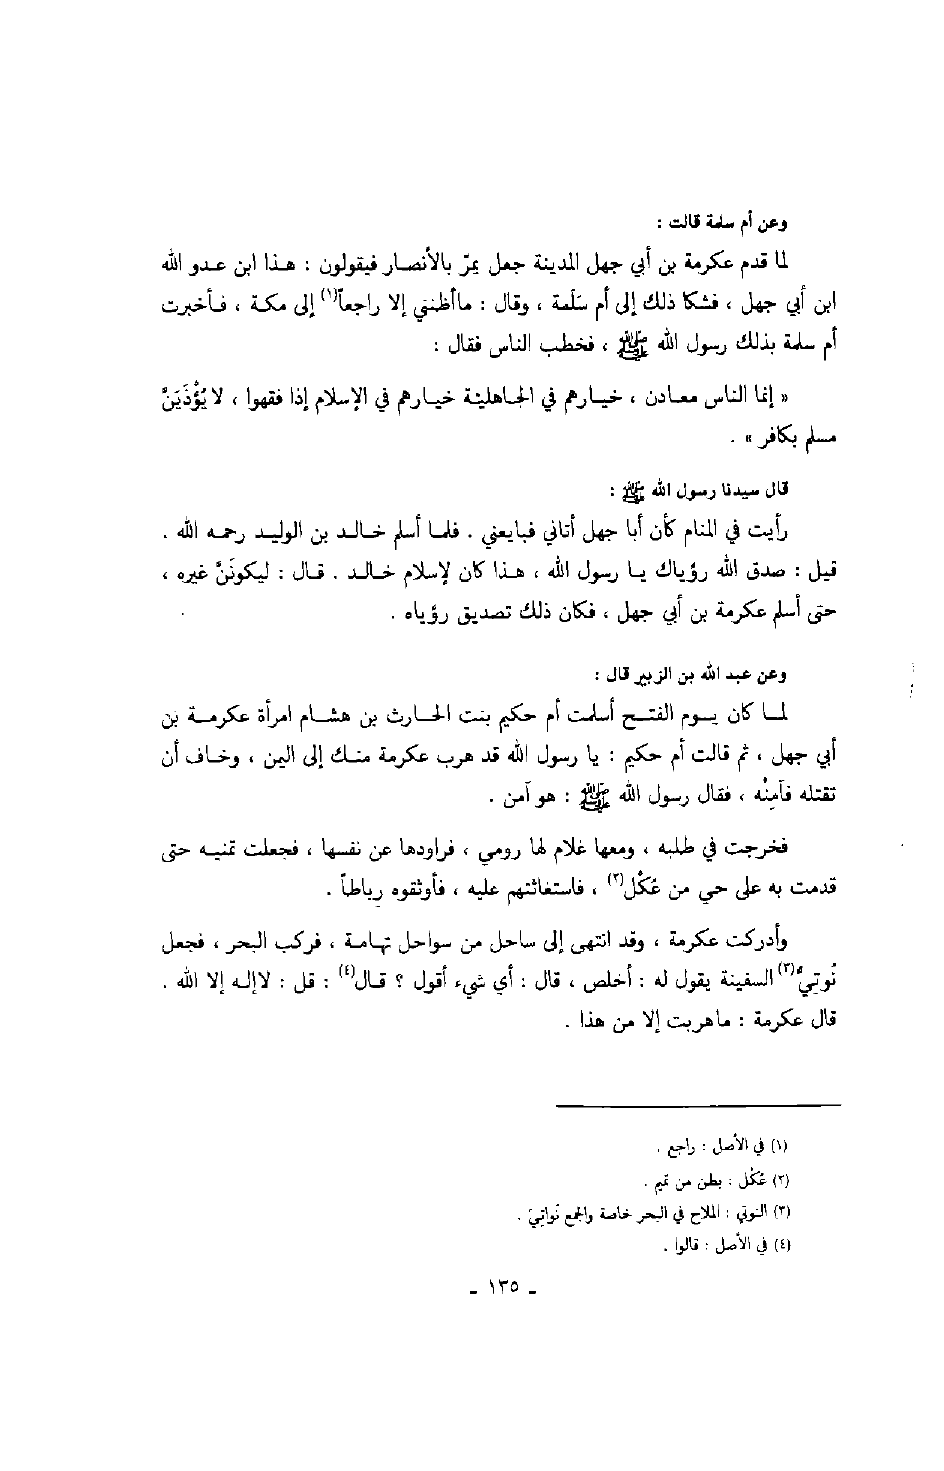 وعن أم سلمة قالت :
لما قدم عكرمة بن أبي جهل المدينة جعل يمرّ بالأنصار فيقولون : هذا ابن عدو الله
ابن أبي جهل ، فشكا ذلك إلى أم سَلَمة ، وقال : ماأظنني إلا راجعاً(١) إلى مكة ، فأخبرت
أم سلمة بذلك رسول الله ﷺ ، فخطب الناس فقال :
« إنما الناس معادن ، خيارهم في الجاهلية خيارهم في الإسلام إذا فقهوا ، لا يُؤْذَيَنَّ
مسلم بكافر » .
قال سيدنا رسول الله ﷺ :
رأيت في المنام كأن أبا جهل أتاني فبايعني . فلما أسلم خالد بن الوليد رحمه الله .
قيل : صدق الله رؤياك يا رسول الله ، هذا كان لإسلام خالد . قال : ليكونَنَّ غيره ،
حتى أسلم عكرمة بن أبي جهل ، فكان ذلك تصديق رؤياه .
وعن عبد الله بن الزبير قال :
لما كان يوم الفتح أسلمت أم حكيم بنت الحارث بن هشام امرأة عكرمة بن
أبي جهل ، ثم قالت أم حكيم : يا رسول الله قد هرب عكرمة منك إلى اليمن ، وخاف أن
تقتله فآمِنْه ، فقال رسول الله ﷺ : هو آمن .
فخرجت في طلبه ، ومعها غلام لها رومي ، فراودها عن نفسها ، فجعلت تمنيه حتى
قدمت به على حي من عُكْل(٢) ، فاستغاثتهم عليه ، فأوثقوه رباطاً .
وأدركت عكرمة ، وقد انتهى إلى ساحل من سواحل تهامة ، فركب البحر ، فجعل
نُوتِيُّ(٣) السفينة يقول له : أخلص ، قال : أي شيء أقول ؟ قال(٤) : قل : لاإله إلا الله .
قال عكرمة : ماهربت إلا من هذا .
(١) في الأصل : راجع .
(٢) عُكْل : بطن من تميم .
(٣) النوتي : الملاح في البحر خاصة والجمع نَواتِيّ .
(٤) في الأصل : قالوا .
- ١٣٥ -